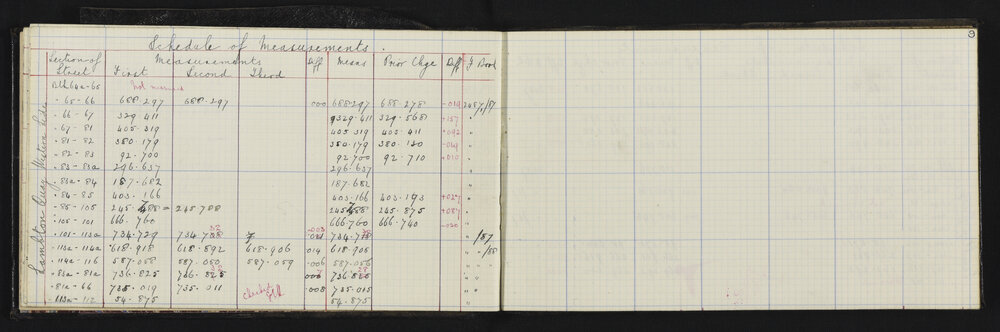 9
Schedule of Measurements.
Section of Street Measurements Diff Means Prior Chge Diff F Book
First Second Third
Blk 64a-65 Not measured
" 65-66 688.297 688.297 .000 688.297 688.278 -.019 2457/87
" 66-67 329.411 329.411 329.568 +.157 "
" 67-81 405.319 405.319 405.411 +.092 "
" 81-82 380.179 380.179 380.130 "
" 82-83 92.700 92.700 92.710 +.010 "
" 83-83a 296.637 296.637 "
" 83a-84 187.682 187.682 "
" 84-85 403.166 403.166 403.193 +.027 "
" 85-105 245.788 = 245.788 245.788 245.875 +.087 "
" 105-101 666.760 666.760 666.740 -.020 "
" 101-113a 734.729 734.728 734.728 " /87
" 113a-114a 618.918 618.892 618.906 .014 618.905 " /88
" 114a-116 587.058 587.050 587.059 .006 587.056 " "
" 83a-81a 736.825 736.825 " "
" 81a-66 735.019 735.011 Checked .008 735.015 "
" 113a-112 54.875 54.875 "